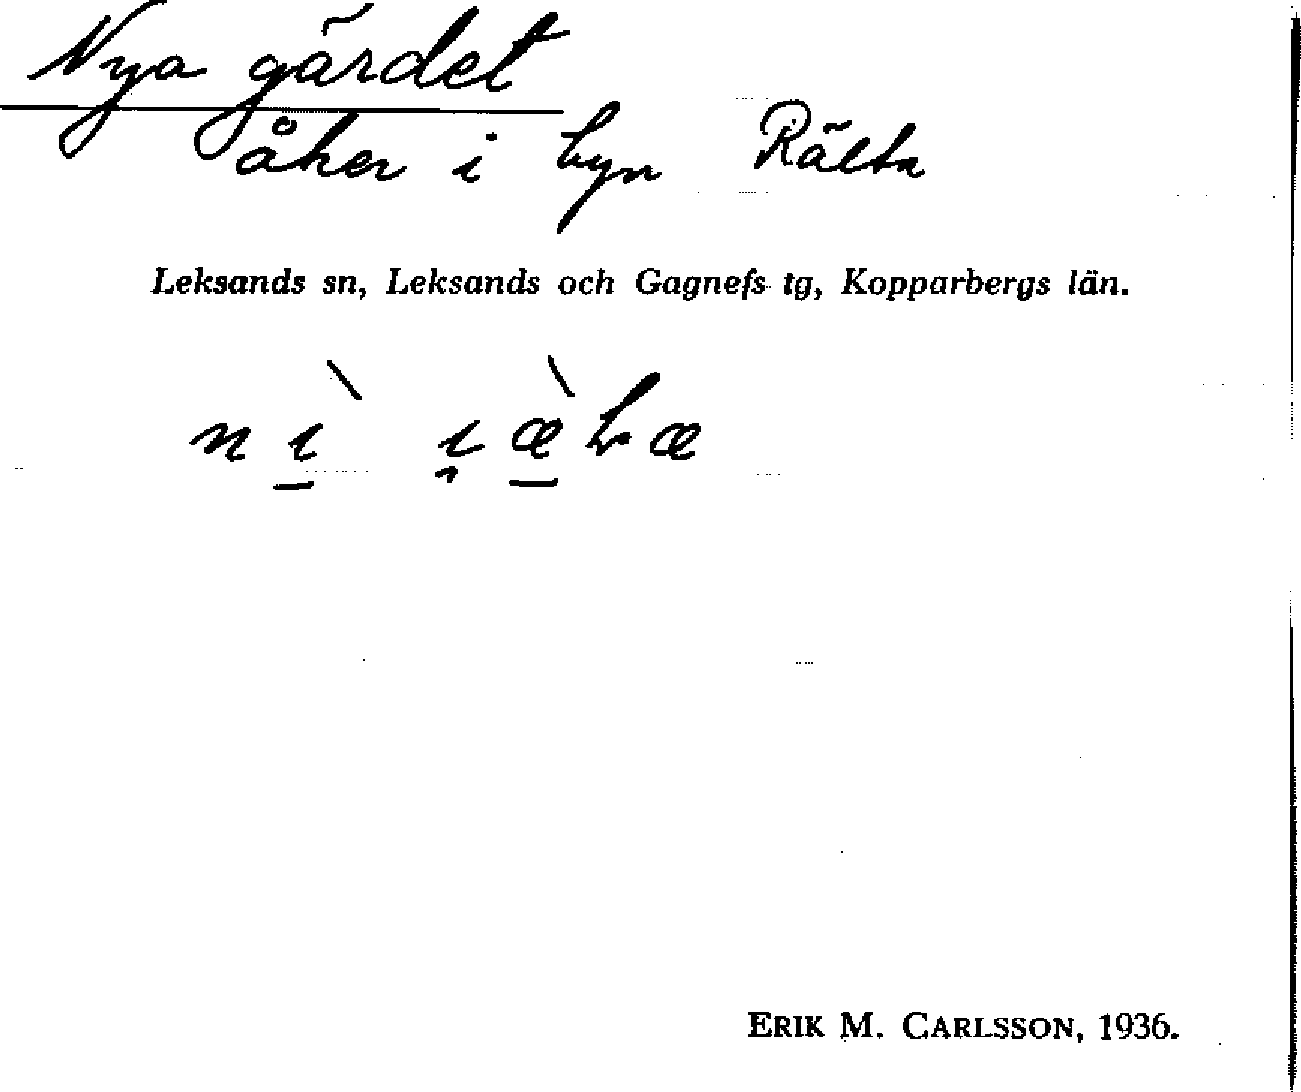 Nya gärdet
åker i byn Rälta
Leksands sn, Leksands och Gagnefs tg, Kopparbergs län.
ERIK M. CARLSSON, 1936.